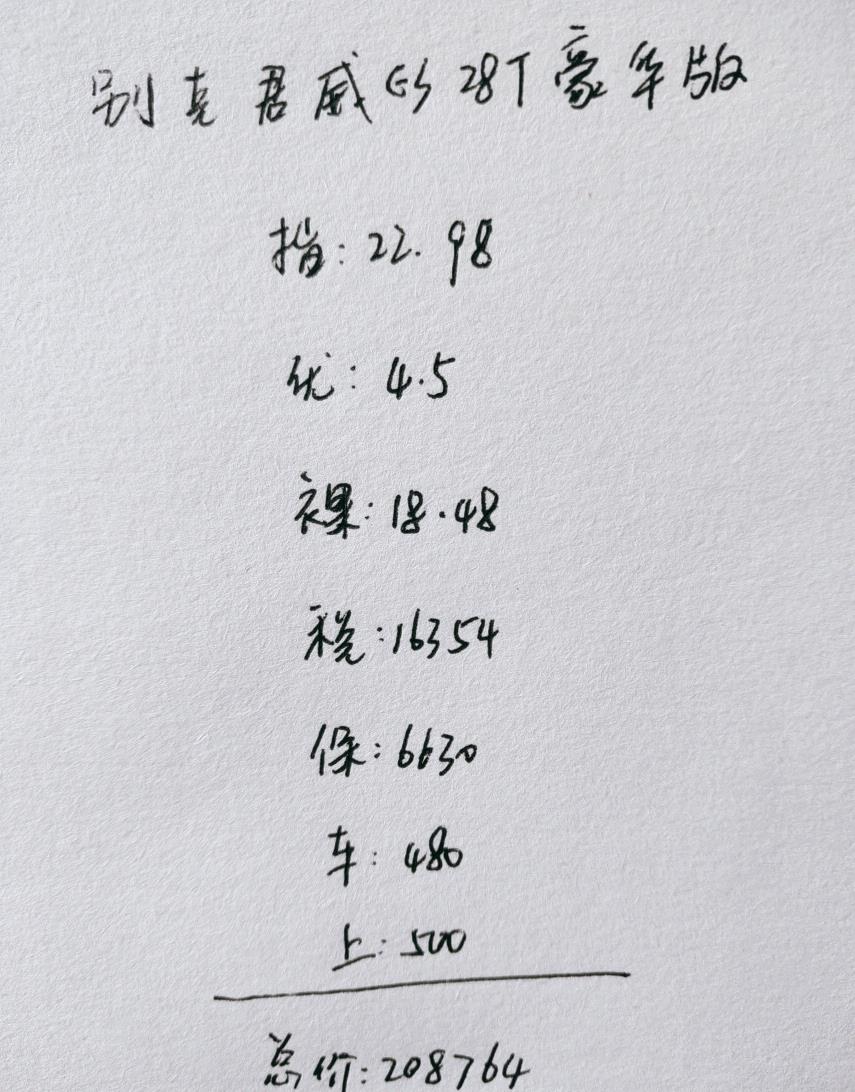 别克君威GS 28T豪华版
指:22.98
优:4.5
裸:18.48
税:16354
保:6630
车:480
上:500
总价:208764